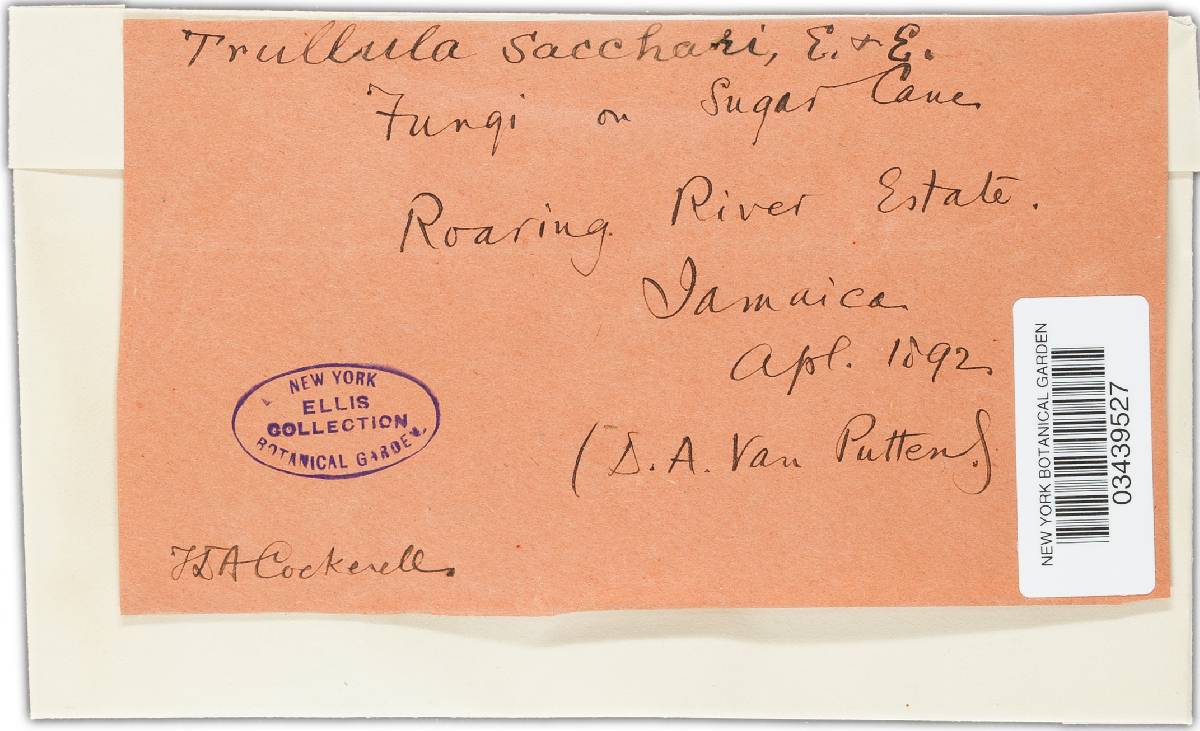 Trullula Sacchari, E. & E.
Fungi on Sugar Cane
Roaring River Estate.
Jamaica
Apl. 1892
(D. A. Van Putten)
NEW YORK
ELLIS
COLLECTION
BOTANICAL GARDEN
TDA Cockerell.
NEW YORK BOTANICAL GARDEN
03439527